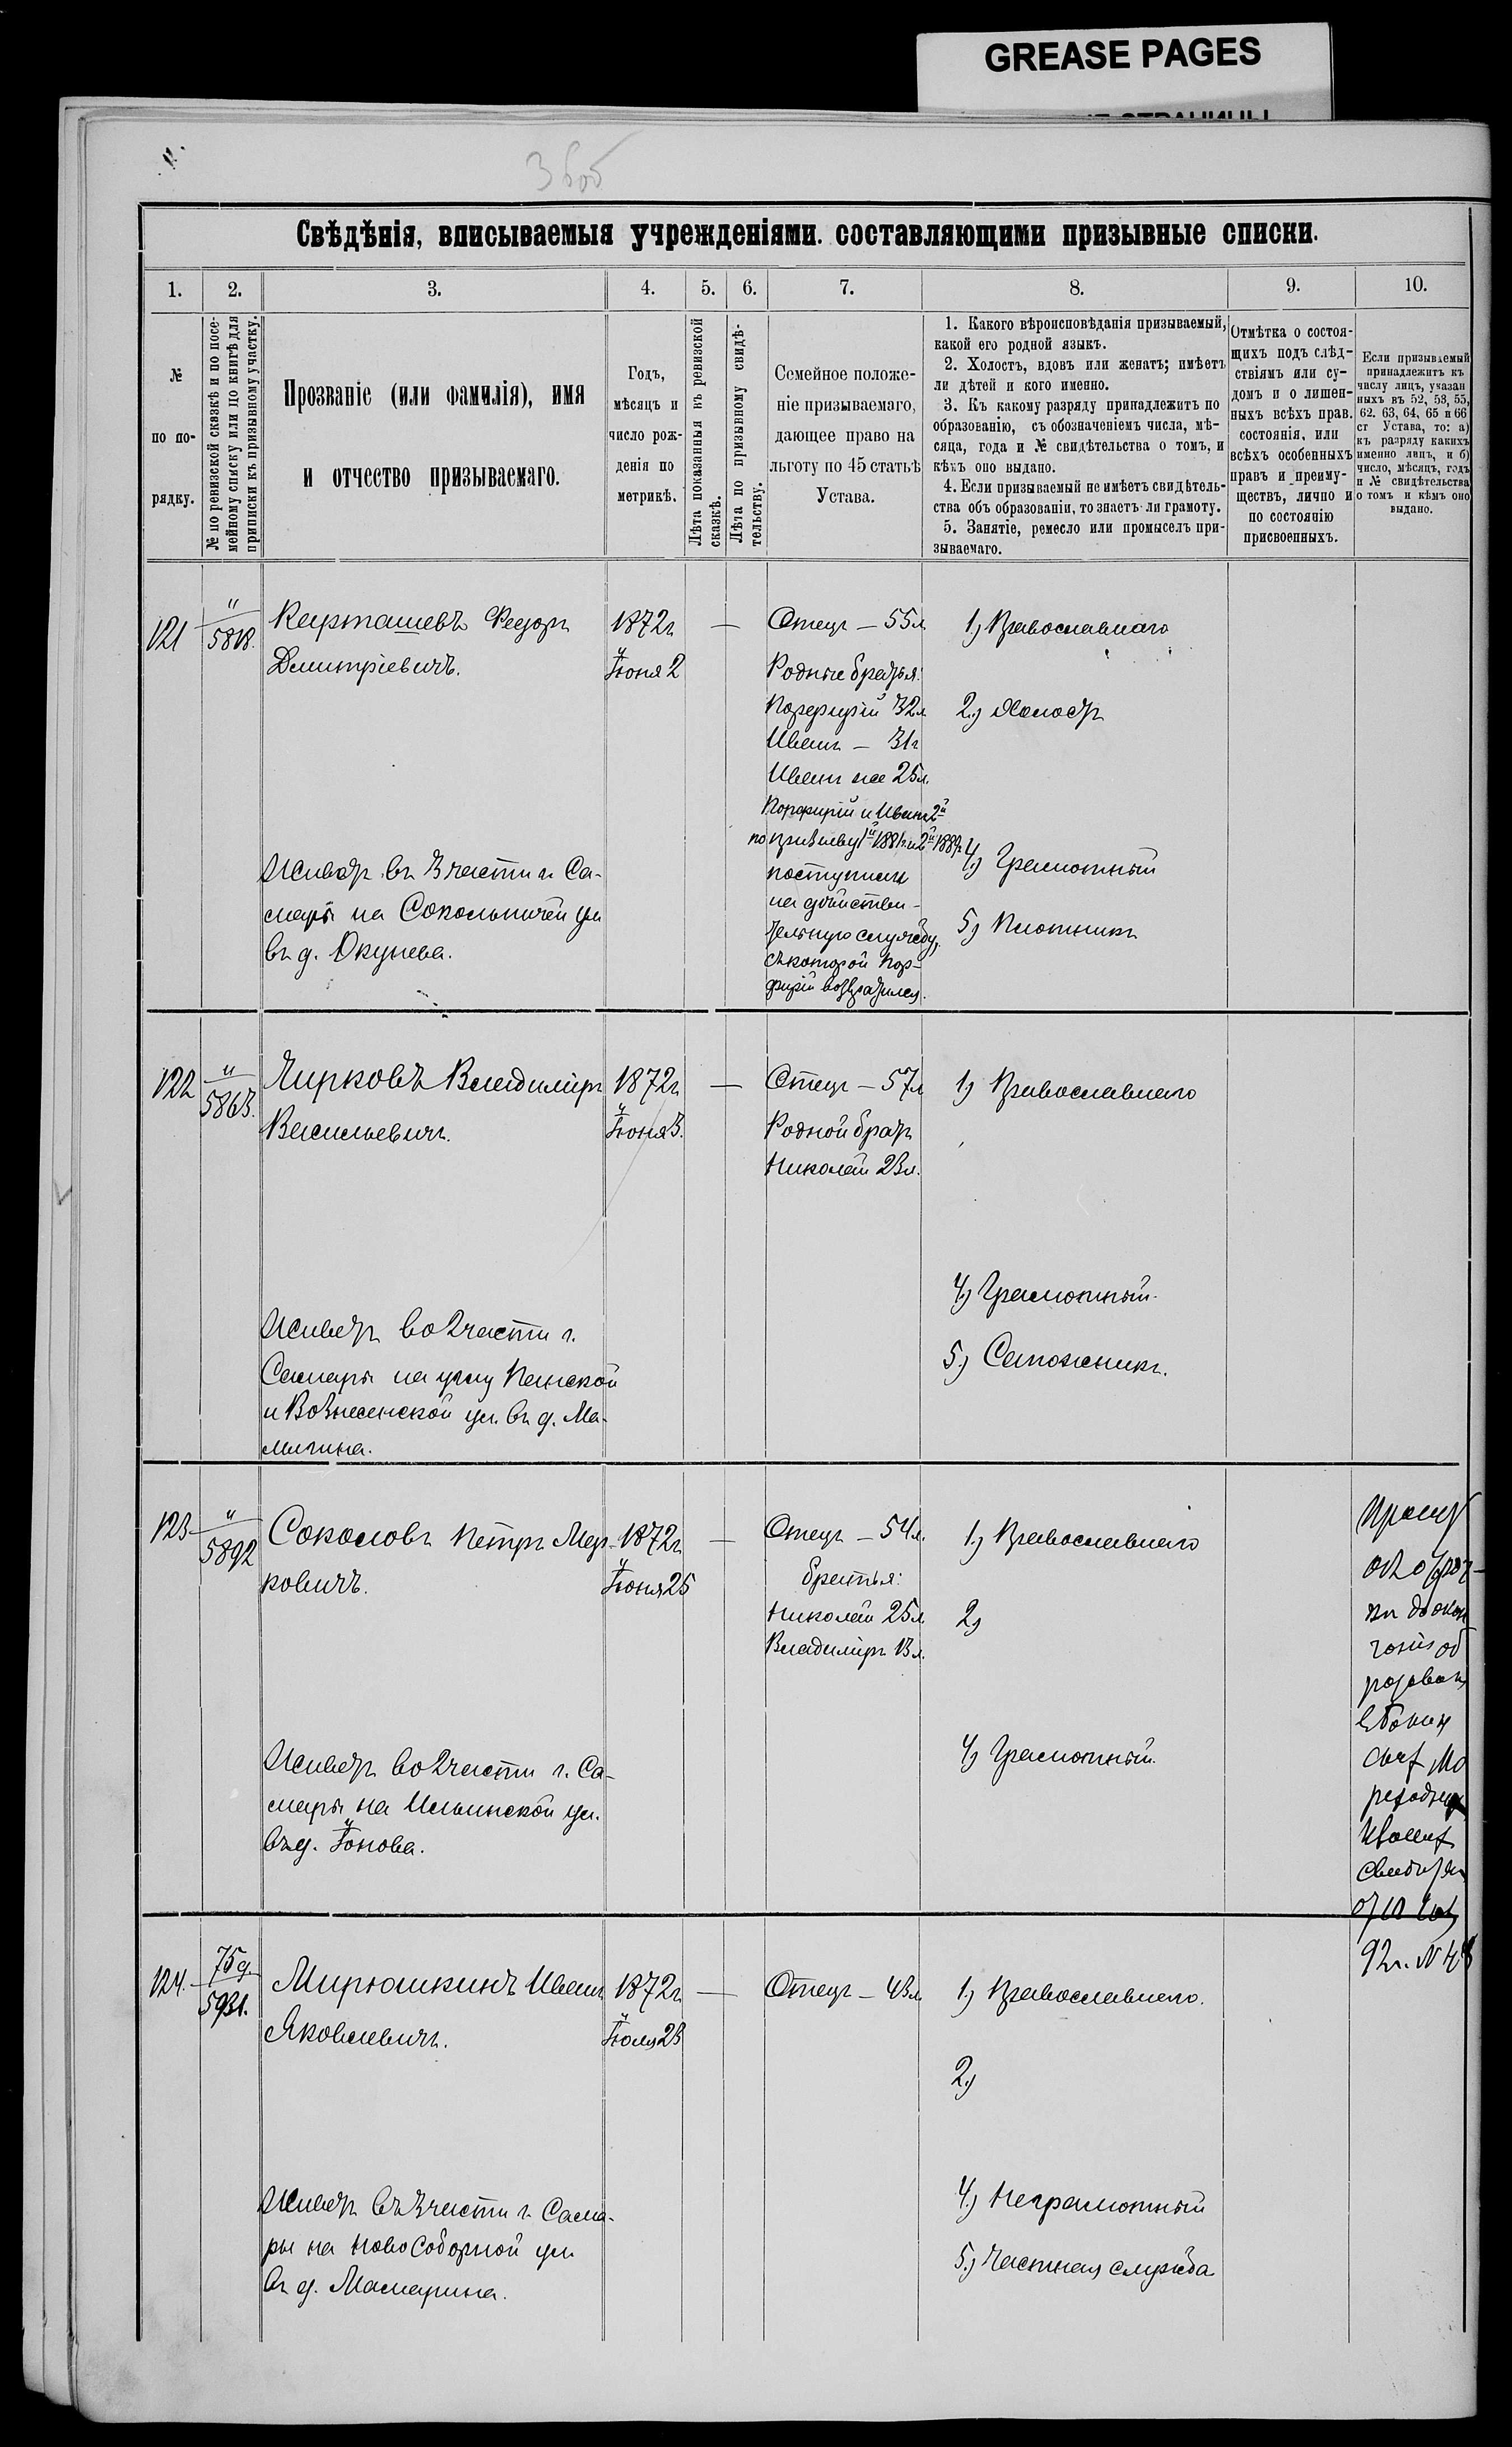 GREASE PAGES
3 боб
Свѣдѣнія, вписываемыя учрежденіями. составляющими призывные списки.
1.
2.
3.
4.
5.
6.
7.
8.
9.
10.
№
по по-
рядку.
№ по ревизской сказкѣ и по посе-
мейному списку или по книгѣ для
приписки къ призывному участку.
Прозваніе (или фамилія), имя
и отчество призываемаго.
Годъ,
мѣсяцъ и
число рож-
денія по
метрикѣ.
Лѣта показанныя въ ревизской
сказкѣ.
Лѣта по призывному свидѣ-
тельству.
Семейное положе-
ніе призываемаго,
дающее право на
льготу по 45 статьѣ
Устава.
1. Какого вѣроисповѣданія призываемый,
какой его родной языкъ.
2. Холостъ, вдовъ или женатъ; имѣетъ
ли дѣтей и кого именно.
3. Къ какому разряду принадлежитъ по
образованію, съ обозначеніемъ числа, мѣ-
сяца, года и № свидѣтельства о томъ, и
кѣмъ оно выдано.
4. Если призываемый не имѣетъ свидѣтель-
ства объ образованіи, то знаетъ ли грамоту.
5. Занятіе, ремесло или промыселъ при-
зываемаго.
Отмѣтка о состоя-
щихъ подъ слѣд-
ствіямъ или су-
домъ и о лишен-
ныхъ всѣхъ прав.
состоянія, или
всѣхъ особенныхъ
правъ и преиму-
ществъ, лично и
по состоянію
присвоенныхъ.
Если призываемый
принадлежитъ къ
числу лицъ, указан
ныхъ въ 52, 53, 55,
62. 63, 64, 65 и 66
ст Устава, то: а)
къ разряду какихъ
именно лицъ, и б)
число, мѣсяцъ, годъ
и № свидѣтельства
о томъ и кѣмъ оно
выдано.
121
"
5818.
Карташевъ Федоръ
Дмитріевичъ.
Живетъ въ 3 части г. Са-
мары на Сокольничей ул
въ д. Окунева.
1872г
Іюня 2
—
Отецъ — 55л
Родные братья:
Порфирій 32л
Иванъ — 31г
Иванъ же 25л.
Порфирій и Иванъ 2й
по призыву 1й 1881г и 2й 1889г
поступили
на дѣйстви-
тельную службу,
съ которой Пор-
фирій возвратился.
1) Православнаго
2) Холостъ
4) Грамотный
5) Плотникъ
122
"
5863.
Чирковъ Владиміръ
Васильевичъ.
Живетъ во 2 части г.
Самары на углу Панской
и Вознесенской ул. въ д. Ма-
мигина.
1872г
Іюня 3.
—
Отецъ — 57л
Родной братъ
Николай 23л.
1) Православнаго
4) Грамотный.
5.) Сапожникъ.
123
"
5892
Соколовъ Петръ Мар-
ковичъ.
Живетъ во 2 части г. Са-
мары на Ильинской ул.
въ д. Іонова.
1872г
Іюня 25
—
Отецъ — 54л.
братья:
Николай 25л
Владиміръ 13л.
1.) Православнаго
2)
4) Грамотный.
92г. №
124.
75 д.
5931.
Мирюшкинъ Иванъ
Яковлевичъ.
Живетъ въ 3 части г. Сама-
ры на Ново Соборной ул.
въ д. Мамарина.
1872г
Іюля 23
—
Отецъ — 43л
1.) Православнаго.
2)
4.) Неграмотный
5.) Частная служба